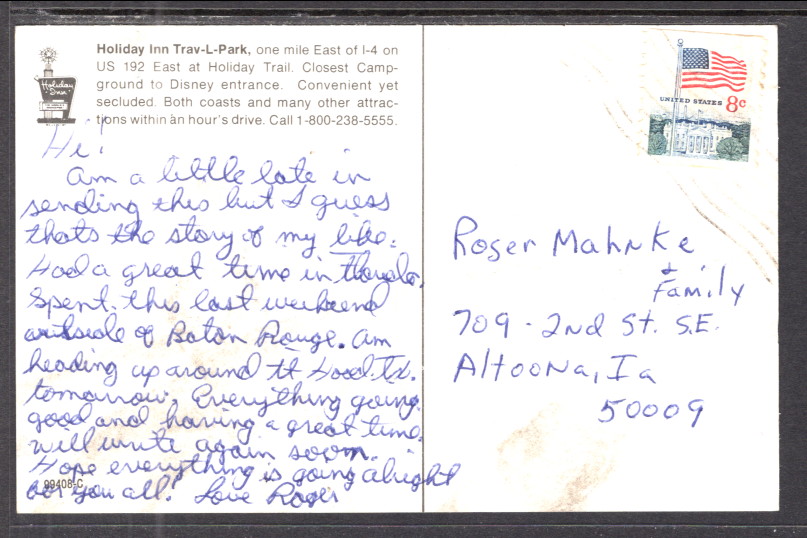 Holiday Inn Trav-L-Park, one mile East of I-4 on
US 192 East at Holiday Trail. Closest Camp-
ground to Disney entrance. Convenient yet
secluded. Both coasts and many other attrac-
tions within an hour's drive. Call 1-800-238-5555.
Holiday
Inn
Hi!
Am a little late in
sending this but I guess
thats the story of my life.
Had a great time in Florida.
Spent this last weekend
outside of Baton Rouge. Am
heading up around Ft Hood Tx.
tomorrow. Everything going
good and having a great time.
Will write again soon.
Hope everything is going alright
for you all! Love Roger
99408-C
UNITED STATES 8c
Roger Mahnke
+ Family
709 - 2nd St. S.E.
Altoona, Ia
50009